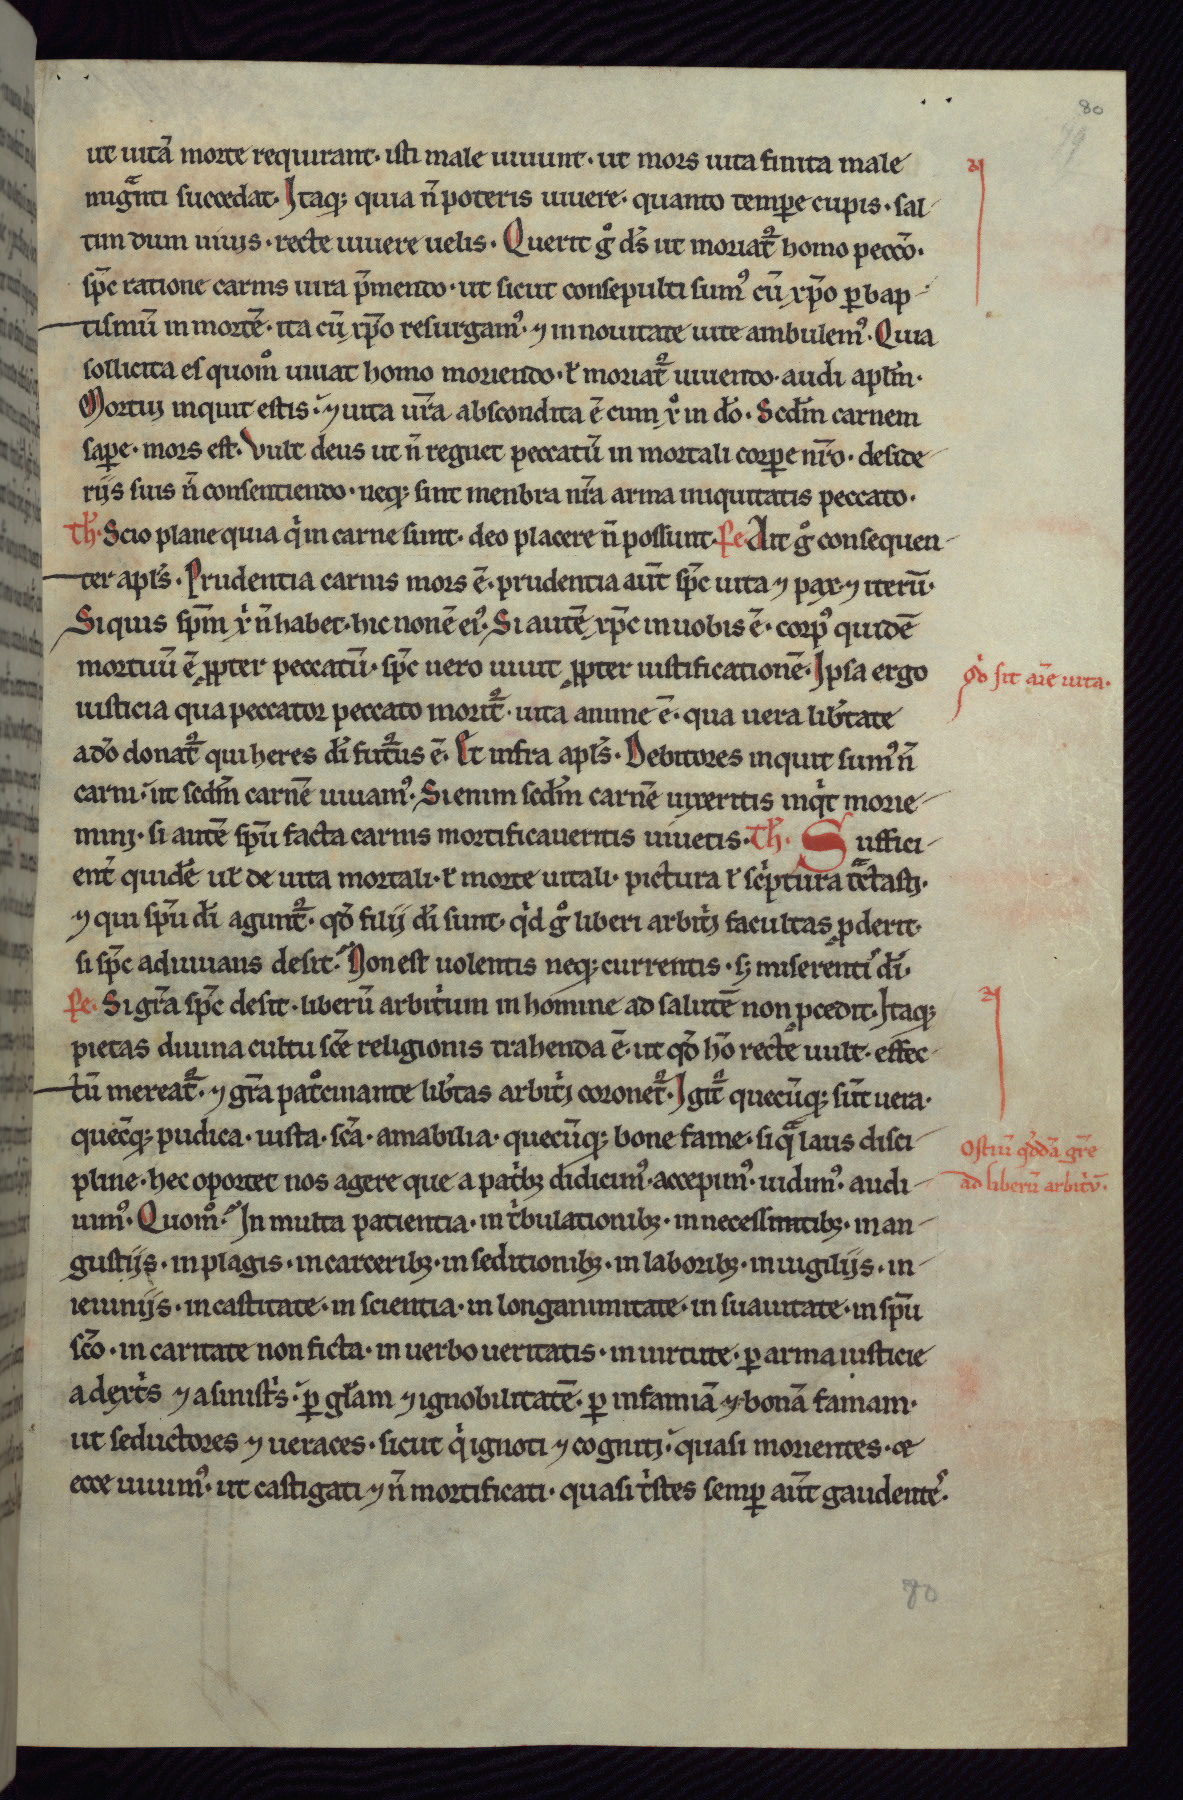 80
79
ut uitā morte requirant· isti male uiuunt· ut mors uita finita male
migᵃnti succedat· Itaq; quia n̄ poteris uiuere· quanto tempe cupis· sal-
tim dum uiuis· recte uiuere uelis· Querit gͦ ds̄ ut moriat᷑ homo pecc̄o·
sp̄c ratione carnis uita p̄mento· ut sicut consepulti sumꝰ cū xp̄o ꝑ bap-
tismū in mortē· ita cū xp̄o resurgamꝰ· ⁊ in nouitate uite ambulemꝰ· Quia
sollicita es quom̊ uiuat homo moriendo· ł moriat᷑ uiuendo· audi apl̄m·
Mortui inquit estis· ⁊ uita ur̄a abscondita ē cum xͦ in do̅· Scdm̄ carnem
sape· mors est· Vult deus ut n̄ regnet peccatū in mortali corpe nr̄o· deside-
rijs suis n̄ consentiendo· neq; sint menbra nr̄a arma iniquitatis peccato·
Th̄· Scio plane quia qͥ in carne sunt· deo placere n̄ possunt· Pe· Ait gͦ consequen-
ter apl̄s· Prudentia carnis mors ē· prudentia aut̄ sp̄c uita ⁊ pax· ⁊ iterū·
Siquis sp̄m xͥ n̄ habet· hic non ē eiꝰ· Si autē xp̄c in uobis ē· corpꝰ quidē
mortuū ē ꝓpter peccatū· sp̄c uero uiuit ꝓpter iustificationē· Ipsa ergo
qͦd sit aīe uita·
iusticia qua peccator peccato morit᷑· uita anime ē· qua uera lib̄tate
a do̅ donat᷑ qui heres dī fut᷑us ē· Et infra apl̄s· Debitores inquit sumꝰ n̄
carni· ut scdm̄ carnē uiuamꝰ· Si enim scdm̄ carnē uixeritis inqͥt morie-
mini· si autē sp̄u facta carnis mortificaueritis uiuetis· Th̄· Suffici-
ent̄ quidē uł de uita mortali· ł morte uitali· pictura ł scͥptura tᵃctasti·
⁊ qui sp̄u dī agunt᷑· qd̄ filij dī sunt· qͥd gͦ liberi arbitͥj facultas ꝓderit·
si sp̄c adiuuans desit· Non est uolentis neq; currentis· s; miserentꝰ dī·
Pe· Si gr̄a sp̄c desit· liberū arbitͥum in homine ad salutē non ꝓcedit· Itaq;
pietas diuina cultu sc̄e religionis trahenda ē· ut qd̄ ho̅ recte uult· effec-
tū mereat᷑· ⁊ gr̄a patͦcinante lib̄tas arbitͥj coronet᷑· Igit᷑ quecūq; sūt uera·
quec̄q; pudica· iusta· sc̄a· amabilia· quecūq; bone fame· siqᵃ laus disci-
Ostiū qͦddā gr̄e
pline· hec oportet nos agere que a patͥb; didicimꝰ· accepimꝰ· uidimꝰ· audi-
ad liberū arbitͥū·
uimꝰ· Quom̊· In multa patientia· in tͥbulationib; · in necessitatib; · in an-
gustijs· in plagis· in carcerib; · in seditionib; · in laborib; · in uigilijs· in-
ieiunijs· in castitate· in scientia· in longanimitate· in suauitate· in sp̄u
sc̄o· in caritate non ficta· in uerbo ueritatis· in uirtute· ꝑ arma iusticie
a dextͥs ⁊ a sinistͥs· ꝑ gl̄am ⁊ ignobilitatē· ꝑ infamiā ⁊ bonā famam·
ut seductores ⁊ ueraces· sicut qͥ ignoti ⁊ cogniti· quasi morientes· ⁊
ecce uiuimꝰ· ut castigati ⁊ n̄ mortificati· quasi tͥstes semꝑ aut̄ gaudentes·
80